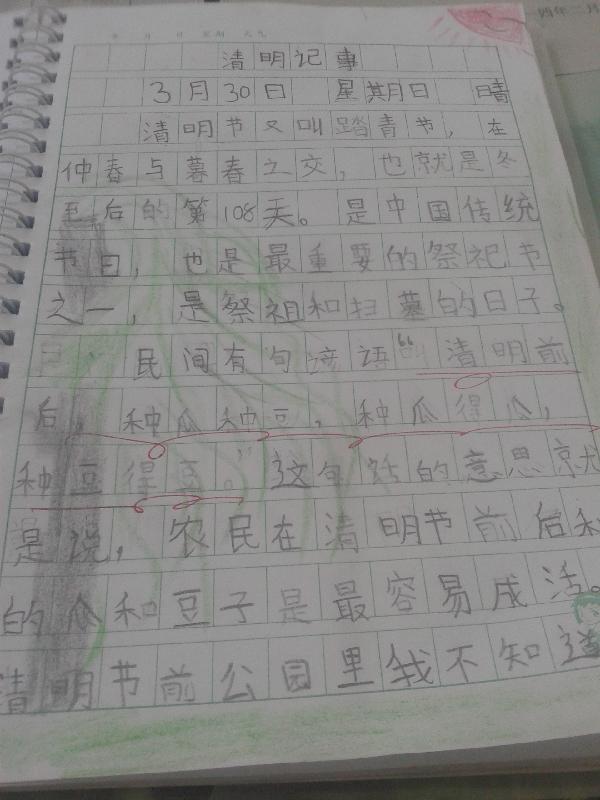 年 月 日 星期 天气
清明记事
3月30日 星期日 晴
清明节又叫踏青节，在
仲春与暮春之交，也就是冬
至后的第108天。是中国传统
节日，也是最重要的祭祀节
之一，是祭祖和扫墓的日子。
民间有句谚语“清明前
后，种瓜种豆，种瓜得瓜，
种豆得豆。”这句话的意思就
是说，农民在清明节前后种
的瓜和豆子是最容易成活。
清明节前公园里我不知道